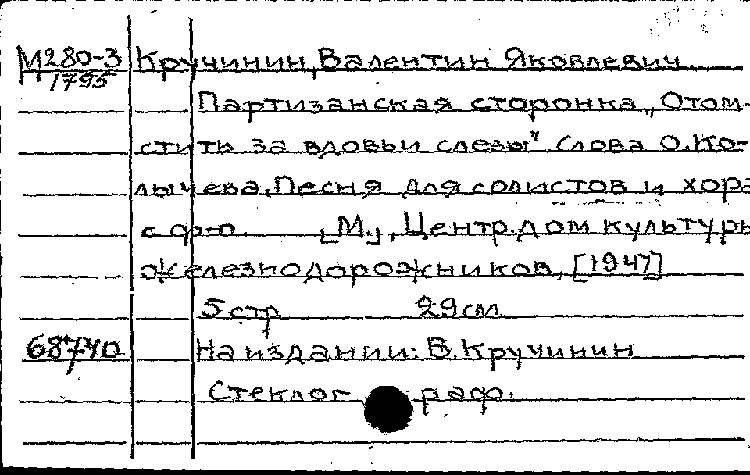 М280-3 Кручинин, Валентин Яковлевич
1795
Партизанская сторонка „Отом-
стить за вдовьи слезы" Слова О. Ко-
лычева. Песня для солистов и хора
с ф-п. [М.], Центр. дом культуры
железнодорожников, [1947]
5 стр 29 см
68740 На издании: В. Кручинин
Стеклограф.